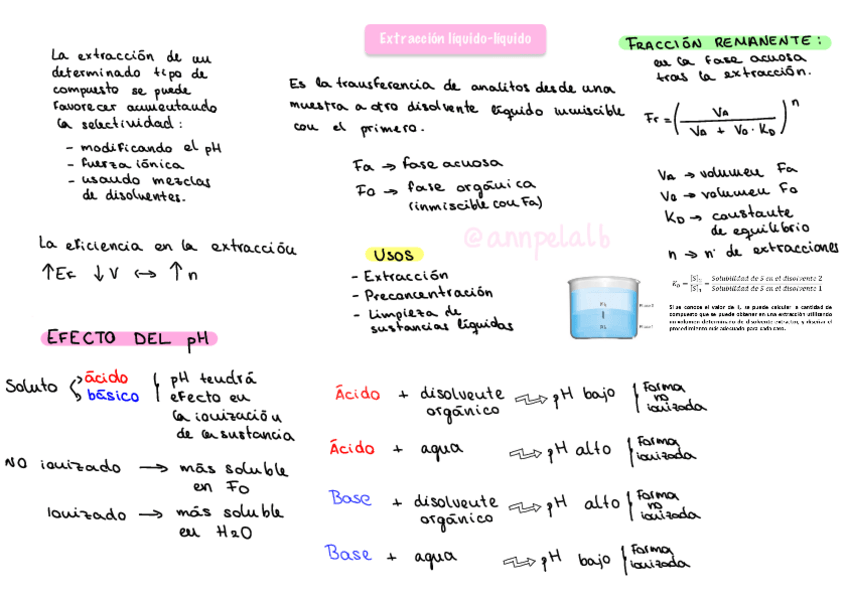 Extracción líquido-líquido
La extracción de un
determinado tipo de
compuesto se puede
favorecer aumentando
la selectividad:
- modificando el pH
- fuerza iónica
- usando mezclas
de disolventes.
Es la transferencia de analitos desde una
muestra a otro disolvente líquido inmiscible
con el primero.
Fa → fase acuosa
Fo → fase orgánica
(inmiscible con Fa)
FRACCIÓN REMANENTE:
en la fase acuosa
tras la extracción.
Fr = (VA / (VA + Vo · KD))^n
VA → volumen Fa
Vo → volumen Fo
KD → constante
de equilibrio
n → nº de extracciones
KD = [S]2 / [S]1 = Solubilidad de S en el disolvente 2 / Solubilidad de S en el disolvente 1
La eficiencia en la extracción
↑EF ↓V ↔ ↑n
@annpelalb
USOS
- Extracción
- Preconcentración
- Limpieza de
sustancias líquidas
Si se conoce el valor de se puede calcular la cantidad de
compuesto que se puede obtener en una extracción utilizando
un volumen determinado de disolvente extractor, y diseñar el
procedimiento más adecuado para cada caso.
EFECTO DEL pH
Soluto ácido básico
pH tendrá
efecto en
la ionización
de la sustancia
NO ionizado → más soluble
en Fo
Ionizado → más soluble
en H2O
Ácido + disolvente orgánico ⇒ pH bajo Forma no ionizada
Ácido + agua ⇒ pH alto Forma ionizada
Base + disolvente orgánico ⇒ pH alto Forma no ionizada
Base + agua ⇒ pH bajo Forma ionizada